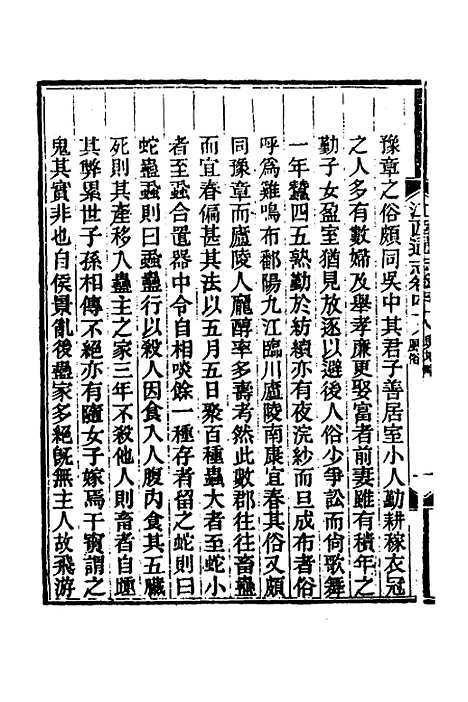 豫章之俗頗同吳中其君子善居室小人勤耕稼衣冠
之人多有數婦及舉孝廉更娶富者前妻雖有積年之
勤子女盈室猶見放逐以避後人俗少爭訟而尙歌舞
一年蠶四五熟勤於紡績亦有夜浣紗而旦成布者俗
呼爲雞鳴布鄱陽九江臨川廬陵南康宜春其俗又頗
同豫章而廬陵人龎醇率多壽考然此數郡往往畜蠱
而宜春偏甚其法以五月五日聚百種蟲大者至蛇小
者至蝨合置器中令自相啖餘一種存者留之蛇則曰
蛇蠱蝨則曰蝨蠱行以殺人因食入人腹內食其五臟
死則其產移入蠱主之家三年不殺他人則畜者自踵
其弊累世子孫相傳不絕亦有隨女子嫁焉干寳謂之
鬼其實非也自侯景亂後蠱家多絕旣無主人故飛游